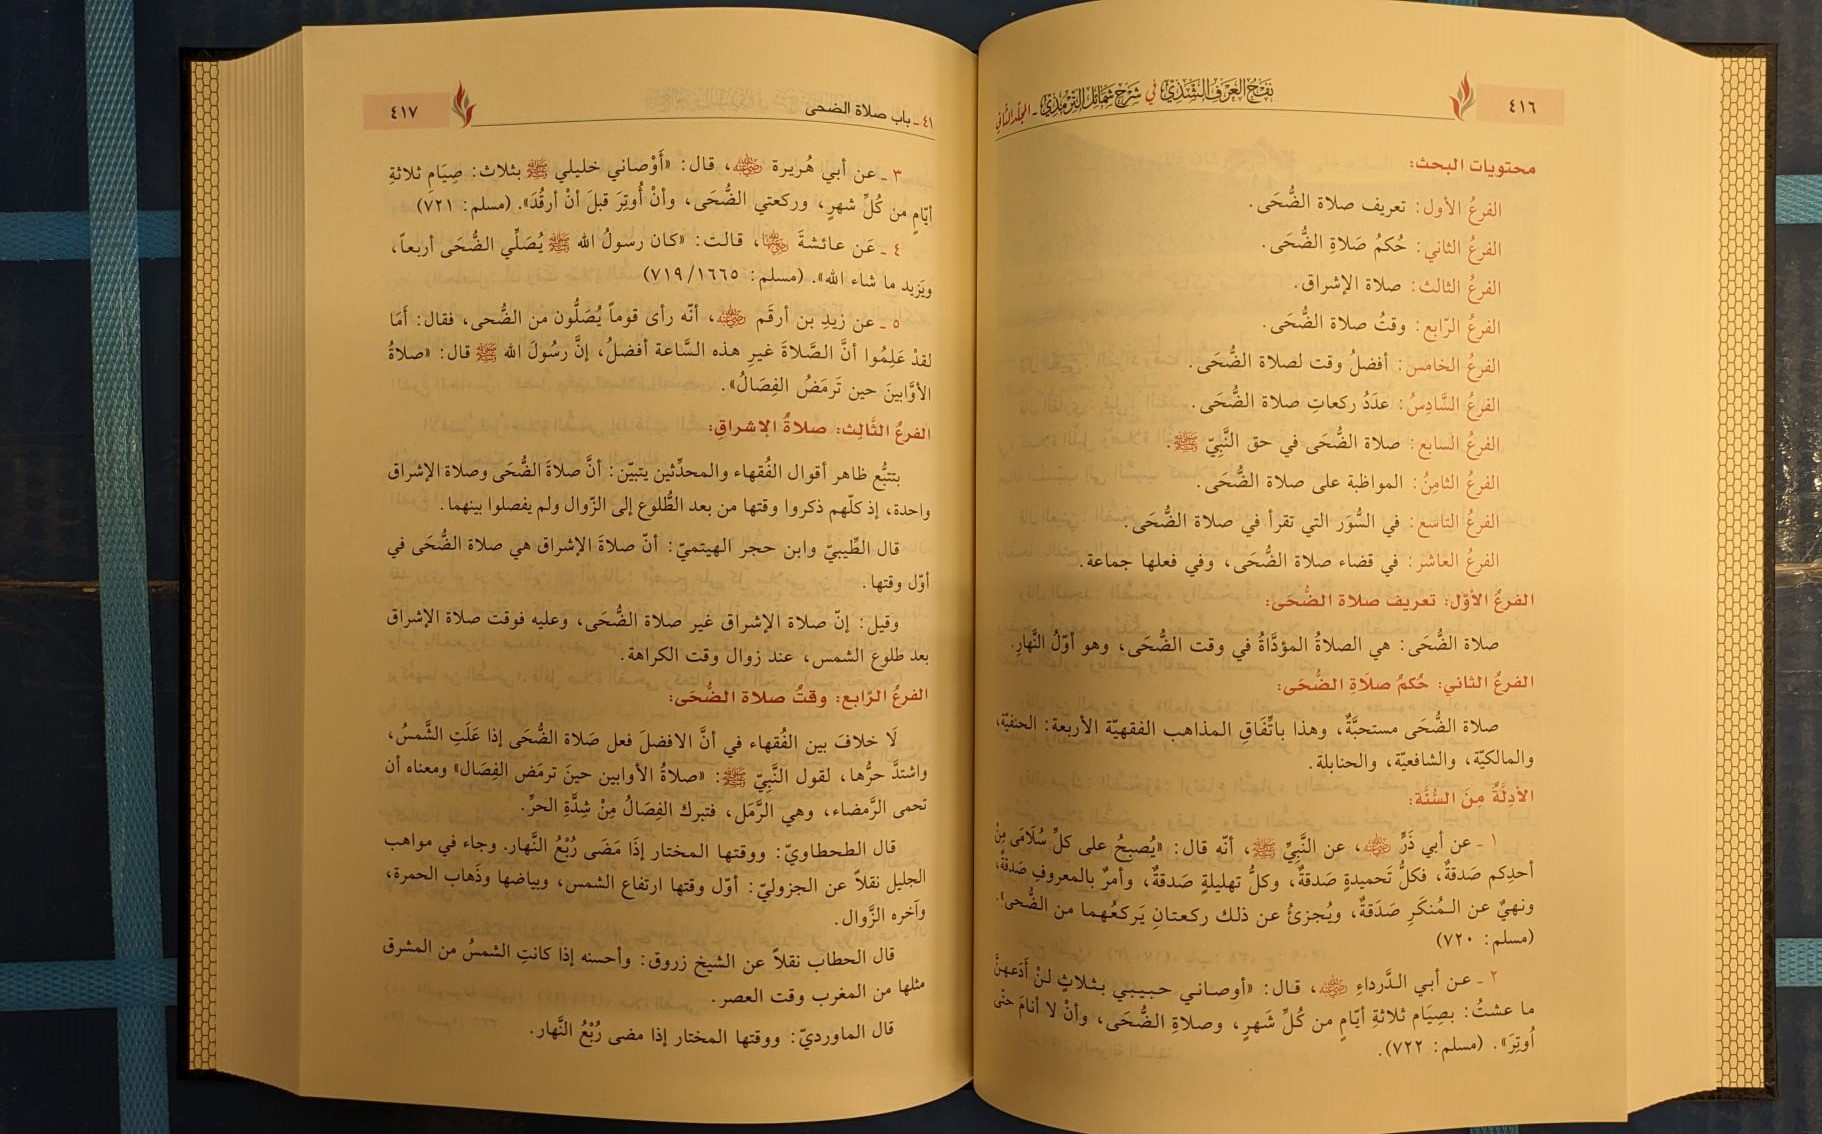 ٤١٦
نَفْحُ العَرْفِ الشَّذِيِّ في شَرْحِ شَمَائِلِ التِّرْمِذِيِّ - المجلد الثاني
محتويات البحث:
الفرعُ الأول: تعريف صلاة الضُّحَى.
الفرعُ الثاني: حُكمُ صَلاةِ الضُّحَى.
الفرعُ الثالث: صلاة الإشراق.
الفرعُ الرّابع: وقتُ صلاة الضُّحَى.
الفرعُ الخامس: أفضلُ وقت لصلاة الضُّحَى.
الفرعُ السَّادِسُ: عدَدُ ركعاتِ صلاة الضُّحَى.
الفرعُ السابع: صلاة الضُّحَى في حق النَّبِيّ ﷺ.
الفرعُ الثامِنُ: المواظبة على صلاة الضُّحَى.
الفرعُ التاسع: في السُّوَر التي تقرأ في صلاة الضُّحَى.
الفرعُ العاشر: في قضاء صلاة الضُّحَى، وفي فعلها جماعة.
الفرعُ الأوّل: تعريف صلاة الضُّحَى:
صلاة الضُّحَى: هي الصلاةُ المؤدَّاةُ في وقت الضُّحَى، وهو أوّلُ النَّهارِ.
الفرعُ الثاني: حُكمُ صلَاةِ الضُّحَى:
صلاة الضُّحَى مستحبَّةٌ، وهذا باتِّفَاقِ المذاهب الفقهيّة الأربعة: الحنفيّة،
والمالكيّة، والشافعيّة، والحنابلة.
الأدِلَّةُ مِنَ السُّنَّة:
١ - عن أبي ذَرٍّ رضي الله عنه، عن النَّبِيِّ ﷺ، أنّه قال: «يُصبحُ على كلِّ سُلَامَى مِنْ
أحدِكم صَدقةٌ، فكلُّ تَحميدةٍ صَدقةٌ، وكلُّ تهليلةٍ صَدقةٌ، وأمرٌ بالمعروفِ صَدقةٌ،
ونهيٌ عن المُنكَرِ صَدَقةٌ، ويُجزئُ عن ذلك ركعتانِ يَركعُهما من الضُّحى».
(مسلم: ٧٢٠)
٢ - عن أبي الدَّرداءِ رضي الله عنه، قال: «أوصاني حبيبي بثلاثٍ لنْ أَدَعهنَّ
ما عشتُ: بصِيَام ثلاثةِ أيّامٍ من كُلِّ شَهرٍ، وصلاةِ الضُّحَى، وأنْ لا أنامَ حتّى
أُوتِرَ». (مسلم: ٧٢٢).
٤١ - باب صلاة الضحى
٤١٧
٣ - عن أبي هُريرة رضي الله عنه، قال: «أَوْصاني خليلي ﷺ بثلاث: صِيَامِ ثلاثةِ
أيّامٍ من كُلِّ شهرٍ، وركعتي الضُّحَى، وأنْ أُوتِرَ قبلَ أنْ أرقُدَ». (مسلم: ٧٢١)
٤ - عَن عائشةَ رضي الله عنها، قالت: «كان رسولُ الله ﷺ يُصَلِّي الضُّحَى أربعاً،
ويَزيد ما شاء الله». (مسلم: ٧١٩/١٦٦٥)
٥ - عن زيدِ بن أرقَم رضي الله عنه، أنّه رأى قوماً يُصَلُّون من الضُّحى، فقال: أَمَا
لقدْ عَلِمُوا أنَّ الصَّلاةَ غيرِ هذه السَّاعة أفضلُ، إنَّ رسُولَ الله ﷺ قال: «صلاةُ
الأوَّابينَ حين تَرمَضُ الفِصَالُ».
الفرعُ الثَّالِث: صلاةُ الإشراقِ:
بتتبُّع ظاهر أقوال الفُقهاء والمحدِّثين يتبيّن: أنَّ صلاةَ الضُّحَى وصلاة الإشراق
واحدة، إذ كلّهم ذكروا وقتها من بعد الطُّلوع إلى الزّوال ولم يفصلوا بينهما.
قال الطِّيبيّ وابن حجر الهيتميّ: أنّ صلاةَ الإشراق هي صلاة الضُّحَى في
أوّل وقتها.
وقيل: إنّ صلاة الإشراق غير صلاة الضُّحَى، وعليه فوقت صلاة الإشراق
بعد طلوع الشمس، عند زوال وقت الكراهة.
الفرعُ الرّابع: وقتُ صلاة الضُّحَى:
لَا خلافَ بين الفُقهاء في أنَّ الافضلَ فعل صَلاة الضُّحَى إذا عَلَتِ الشَّمسُ،
واشتدَّ حرُّها، لقول النَّبِيّ ﷺ: «صلاةُ الأوابين حينَ ترمَض الفِصَال» ومعناه أن
تحمى الرَّمضاء، وهي الرَّمَل، فتبرك الفِصَالُ مِنْ شِدَّةِ الحرِّ.
قال الطحطاويّ: ووقتها المختار إذَا مَضَى رُبْعُ النَّهار. وجاء في مواهب
الجليل نقلاً عن الجزوليّ: أوّل وقتها ارتفاع الشمس، وبياضها وذَهاب الحمرة،
وآخره الزَّوال.
قال الحطاب نقلاً عن الشيخ زروق: وأحسنه إذا كانتِ الشمسُ من المشرق
مثلها من المغرب وقت العصر.
قال الماورديّ: ووقتها المختار إذا مضى رُبْعُ النَّهار.